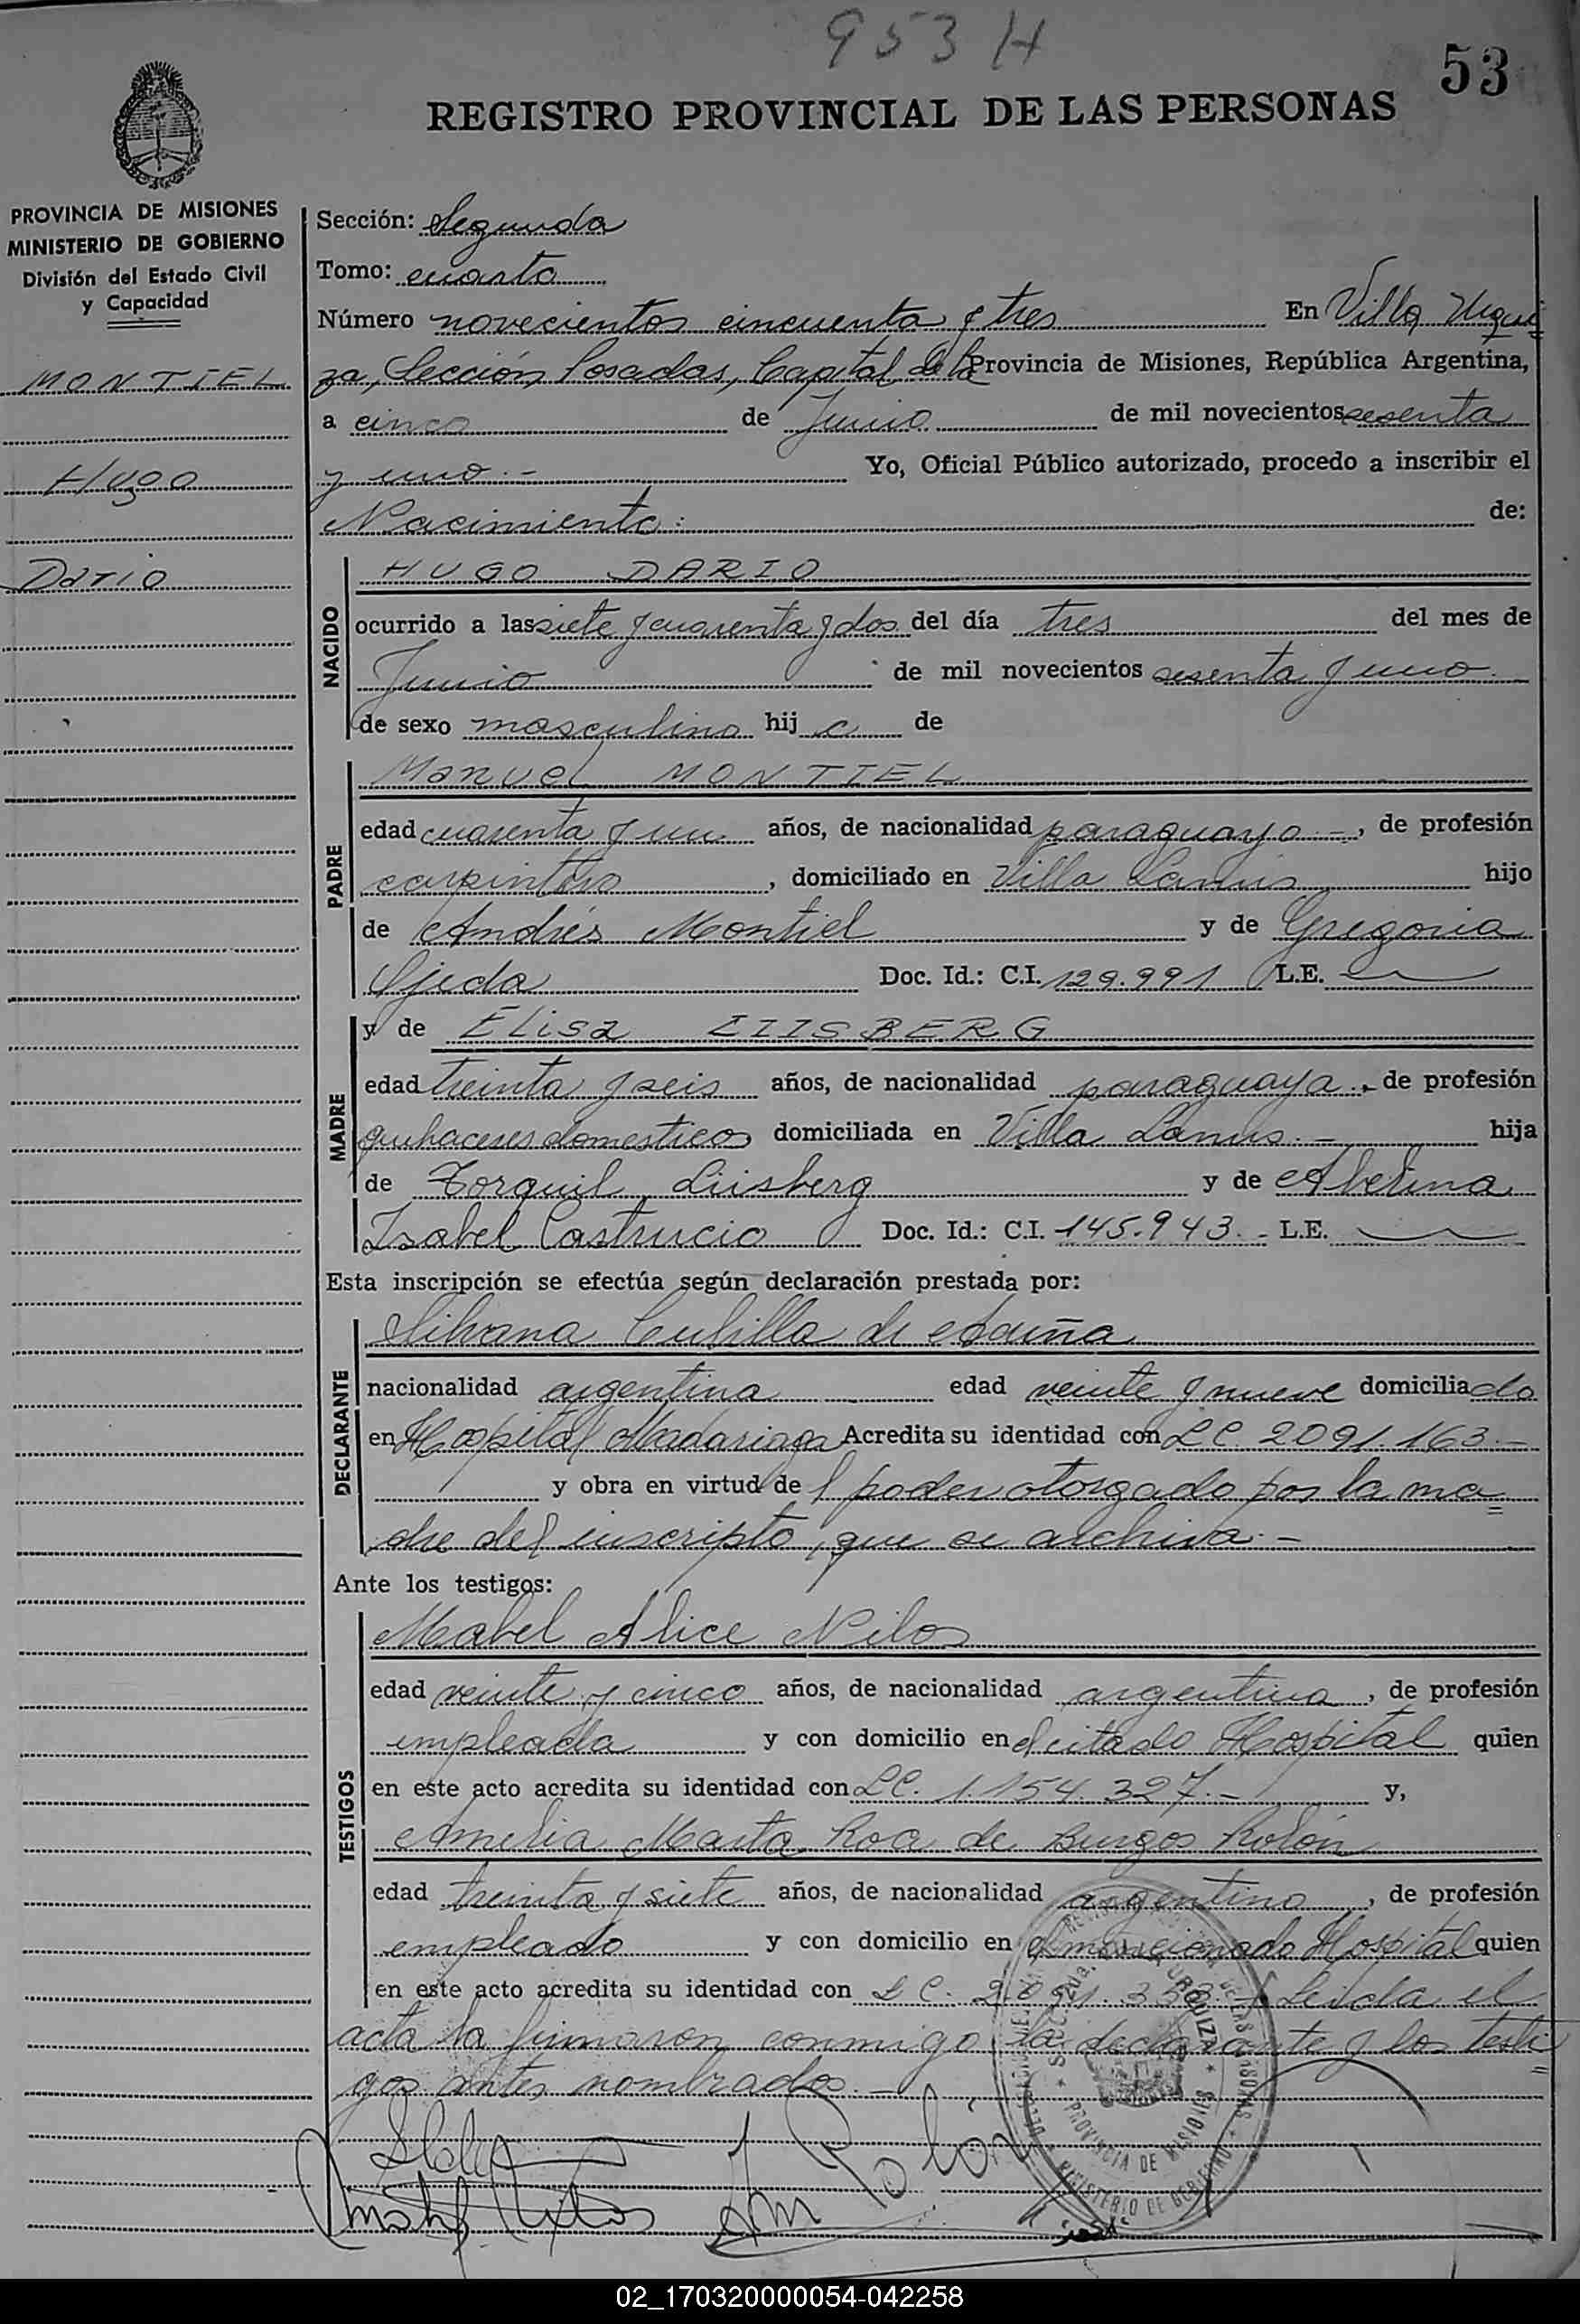 953 H
53
REGISTRO PROVINCIAL DE LAS PERSONAS
PROVINCIA DE MISIONES
MINISTERIO DE GOBIERNO
División del Estado Civil
y Capacidad
MONTIEL
Hugo
Dario
Sección: Segunda
Tomo: cuarto
Número novecientos cincuenta y tres En Villa Urqui=
za, Sección Posadas, Capital de la Provincia de Misiones, República Argentina,
a cinco de Junio de mil novecientos sesenta
y uno.- Yo, Oficial Público autorizado, procedo a inscribir el
Nacimiento: de:
NACIDO
HUGO DARIO
ocurrido a las siete y cuarenta y dos del día tres del mes de
Junio de mil novecientos sesenta y uno
de sexo masculino hij o de
PADRE
Manuel MONTIEL
edad cuarenta y un años, de nacionalidad paraguayo.-, de profesión
carpintero, domiciliado en Villa Lanús hijo
de Andrés Montiel y de Gregoria
Ojeda Doc. Id.: C.I. 129.991 L.E.
MADRE
y de Elisa LIISBERG
edad treinta y seis años, de nacionalidad paraguaya.- de profesión
quehaceres domesticos domiciliada en Villa Lanus.- hija
de Torquil Liisberg y de Abelina
Isabel Castrucio Doc. Id.: C.I. 145.943.- L.E.
Esta inscripción se efectúa según declaración prestada por:
DECLARANTE
Silvana Cubilla de Acuña
nacionalidad argentina edad veinte y nueve domiciliada
en Hospital Madariaga Acredita su identidad con L.C. 2091.163.-
y obra en virtud de l poder otorgado por la ma=
dre del inscripto, que se archiva.-
Ante los testigos:
TESTIGOS
Mabel Alice Nilos
edad veinte y cinco años, de nacionalidad argentina, de profesión
empleada y con domicilio en el citado Hospital quien
en este acto acredita su identidad con L.C. 1.154.327.- y,
Amelia Marta Roa de Burgos Rolón
edad treinta y siete años, de nacionalidad argentino, de profesión
empleado y con domicilio en el mencionado Hospital quien
en este acto acredita su identidad con L C. Leida el
acta la firmaron conmigo la declarante y los testi=
gos antes nombrados.-
URQUIZA
PROVINCIA DE MISIONES
MINISTERIO DE GOBIERNO
Rolón
02_170320000054-042258